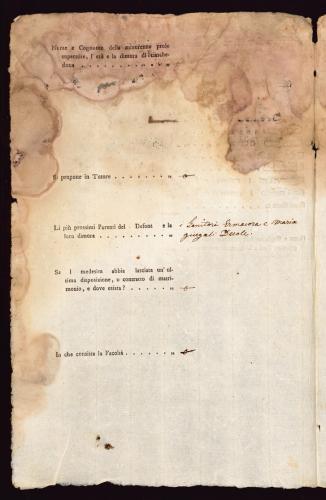 Nome e Cognome della minorenne prole
superstite, l'età e la dimora di ciasche-
duna . . . . . . . . . . „
Si propone in Tutore . . . . . . . „
Li più prossimi Parenti del Defont e la
loro dimora . . . . . . . . . „
i Genitori Ermacora e Maria
Se l medesim abbia lasciata un' ul-
tima disposizione, o contratto di matri-
monio, e dove esista? . . . . . . „
In che consista la Facoltà . . . . . „